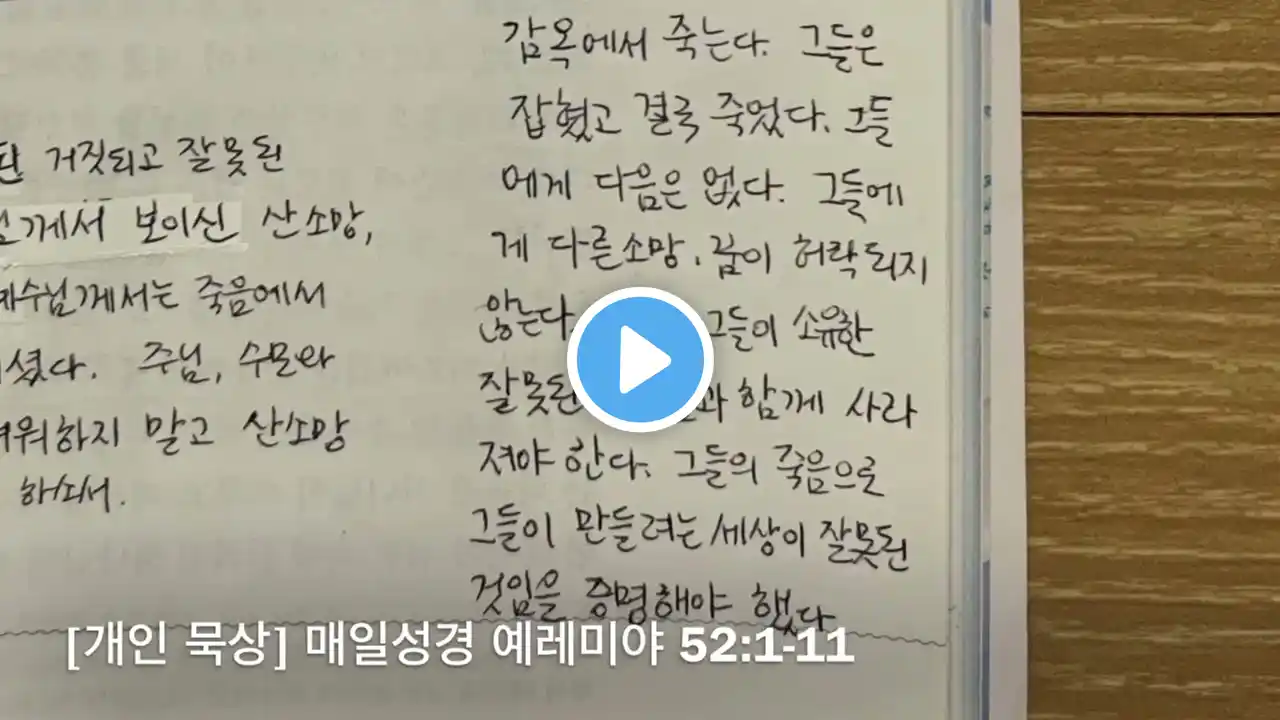 된 거짓되고 잘못된
께서 보이신 산 소망,
예수님께서는 죽음에서
셨다. 주님, 수모와
워하지 말고 산소망
하소서.
감옥에서 죽는다. 그들은
잡혔고 결국 죽었다. 그들
에게 다음은 없다. 그들에
게 다른소망, 꿈이 허락되지
않는다. 그들이 소유한
잘못된 과 함께 사라
져야 한다. 그들의 죽음으로
그들이 만들려는 세상이 잘못된
것임을 증명해야 했다
[개인 묵상] 매일성경 예레미야 52:1-11